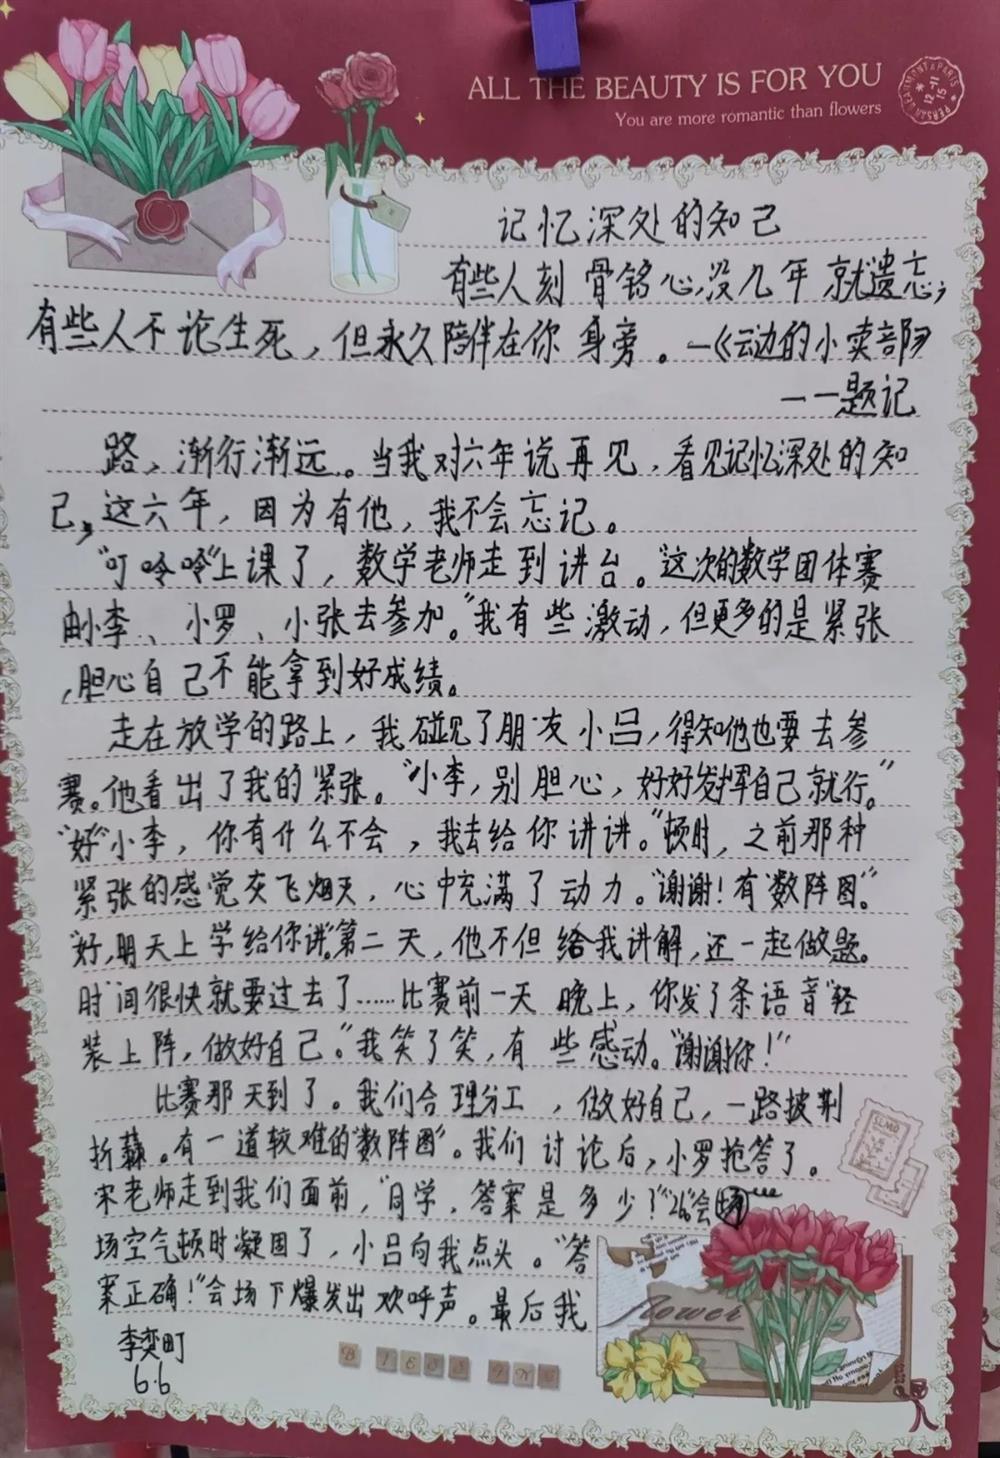 ALL THE BEAUTY IS FOR YOU
You are more romantic than flowers
记忆深处的知己
有些人刻骨铭心,没几年就遗忘,
有些人不论生死,但永久陪伴在你身旁。—《云边的小卖部》
——题记
路,渐行渐远。当我对六年说再见,看见记忆深处的知
己,这六年,因为有他,我不会忘记。
“叮呤呤”上课了,数学老师走到讲台。“这次的数学团体赛
由小李、小罗、小张去参加。”我有些激动,但更多的是紧张
,胆心自己不能拿到好成绩。
走在放学的路上,我碰见了朋友小吕,得知他也要去参
赛。他看出了我的紧张。“小李,别胆心,好好发挥自己就行。”
“好”“小李,你有什么不会,我去给你讲讲。”顿时,之前那种
紧张的感觉灰飞烟灭,心中充满了动力。“谢谢!有‘数阵图’。”
“好,明天上学给你讲。”第二天,他不但给我讲解,还一起做题。
时间很快就要过去了……比赛前一天晚上,你发了条语音“轻
装上阵,做好自己。”我笑了笑,有些感动。“谢谢你!”
比赛那天到了。我们合理分工,做好自己,一路披荆
折藜。有一道较难的“数阵图”。我们讨论后,小罗抢答了。
宋老师走到我们面前,“同学,答案是多少?”“26”会
场空气顿时凝固了,小吕向我点头。“答
案正确!”会场下爆发出欢呼声。最后我
李奕町
6.6
flower
BLESSING